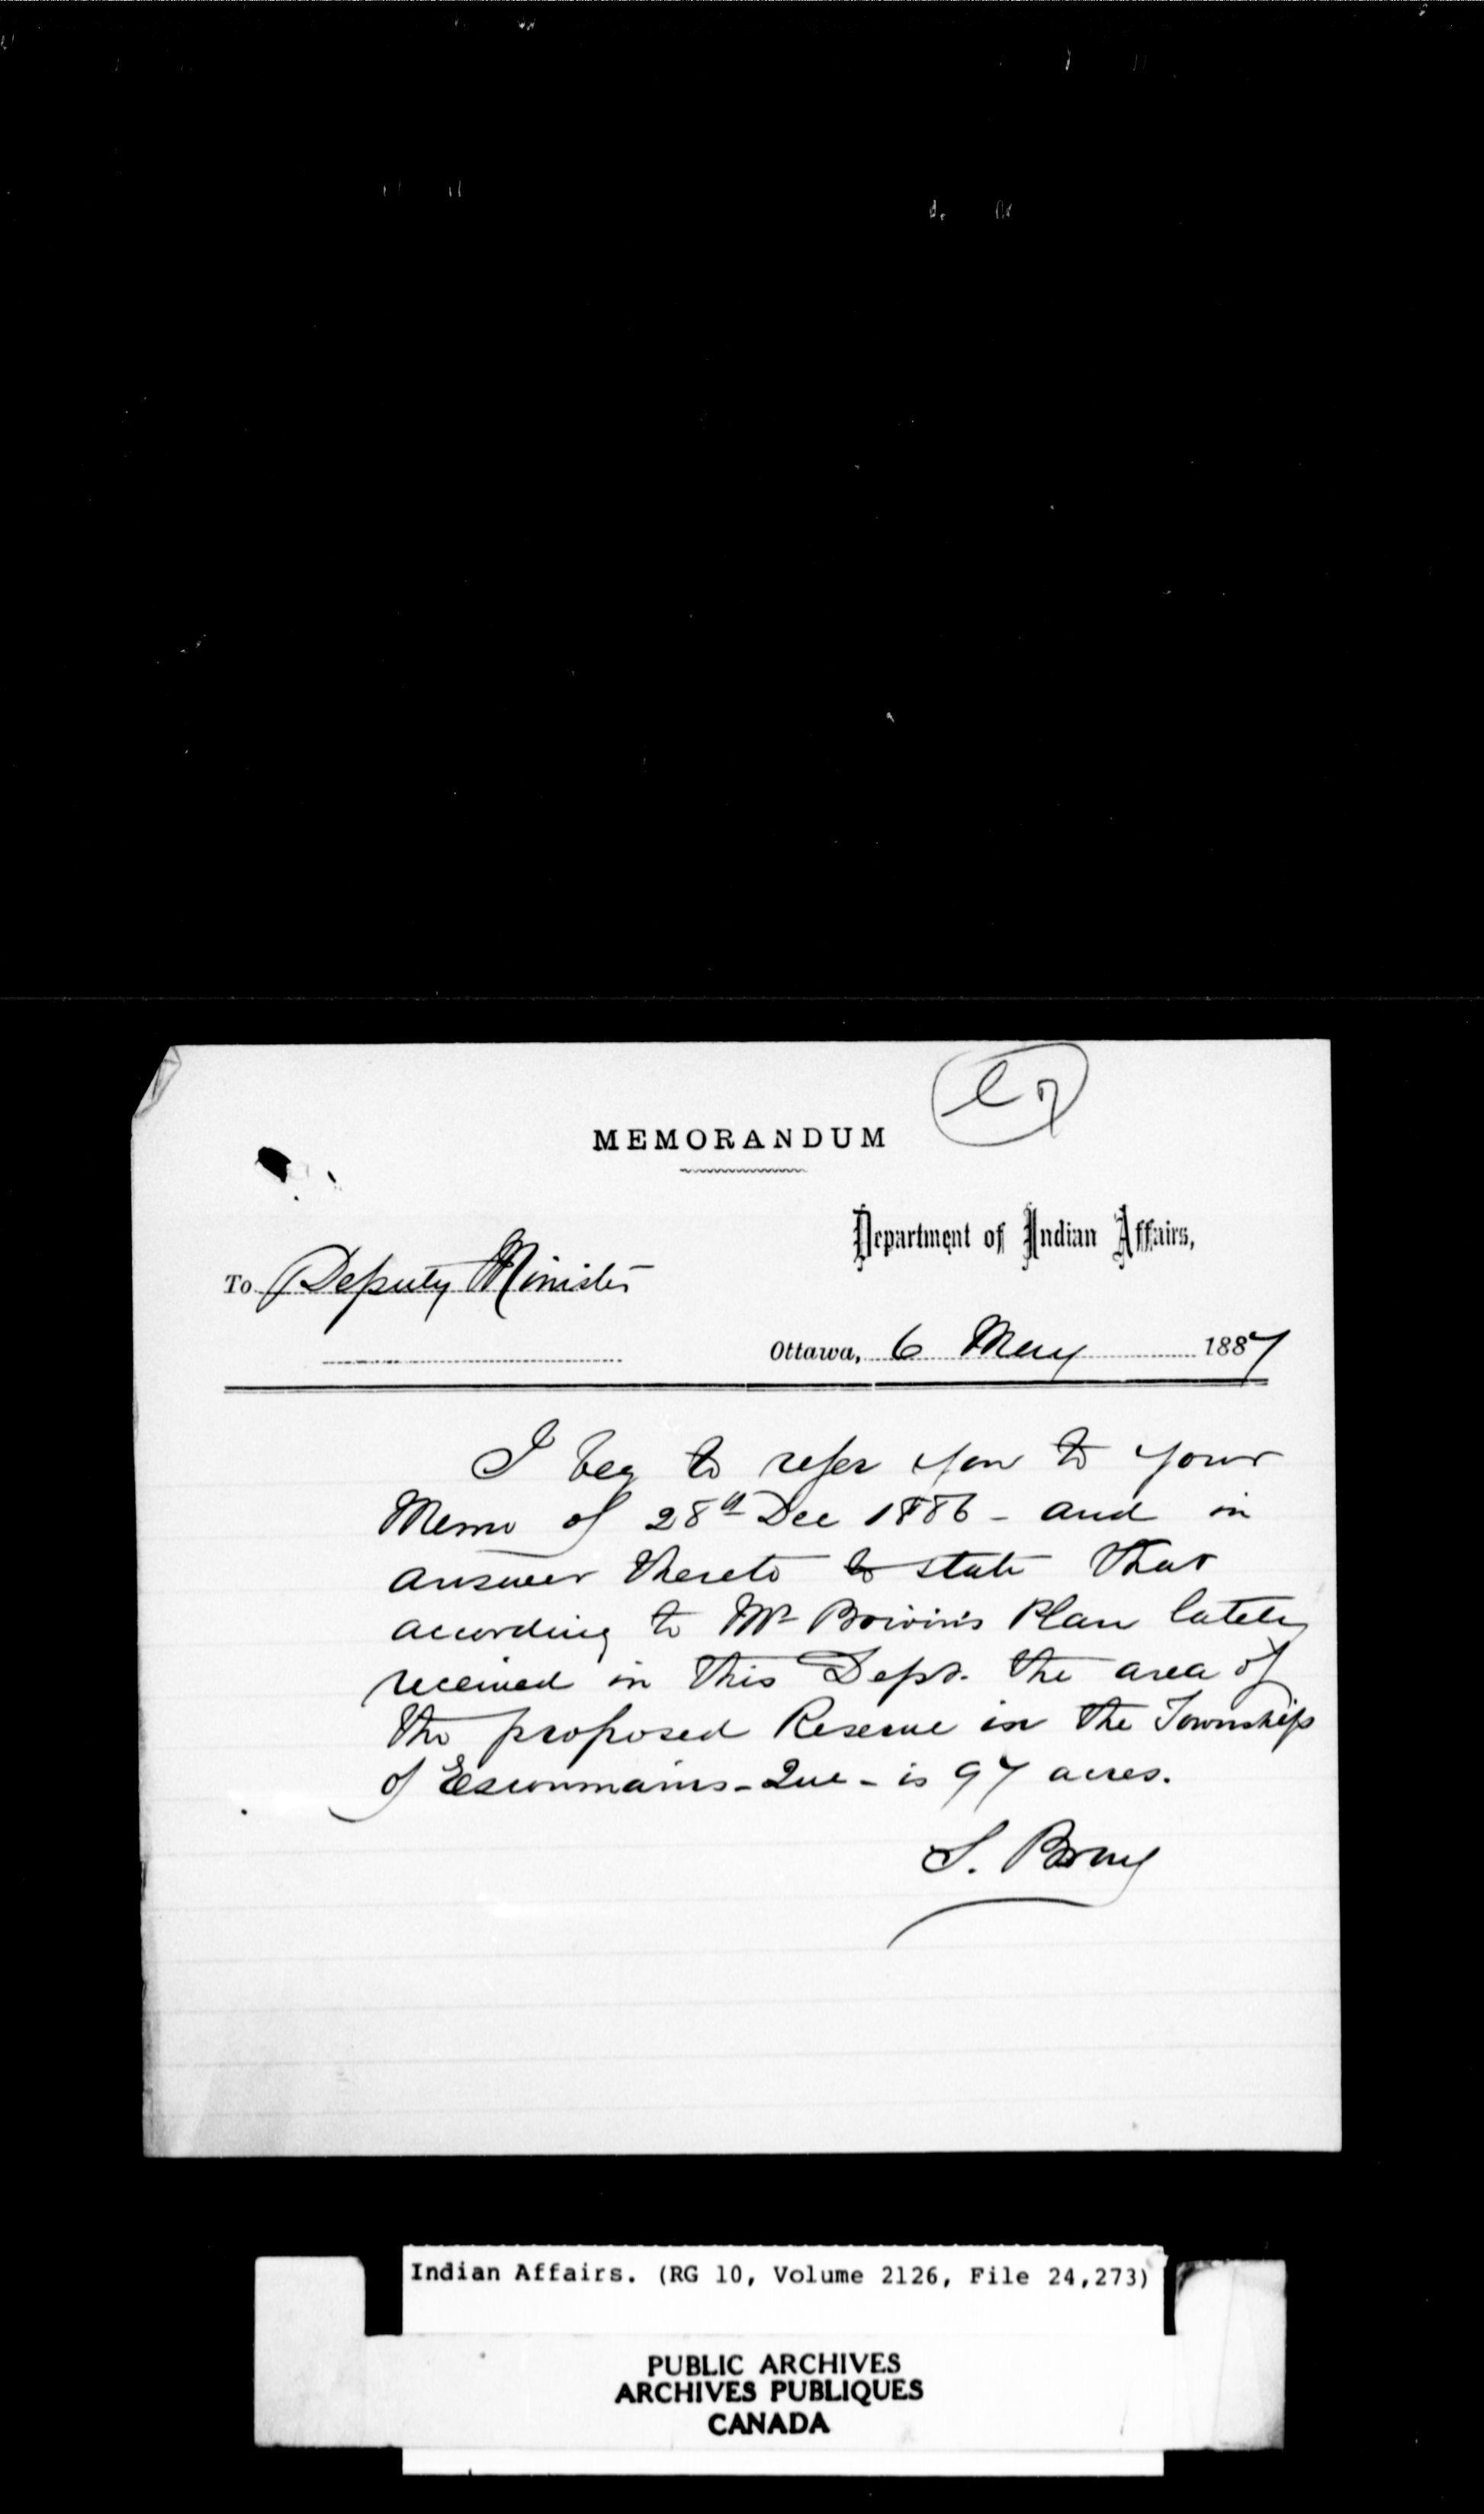 MEMORANDUM
Department of Indian Affairs,
To Deputy Minister
Ottawa, 6 May 1887
I beg to refer you to your
Memo of 28th Dec 1886 - and in
answer thereto to state that
according to Mr Boivin's Plan lately
received in this Dept. the area of
the proposed Reserve in the Township
of Escoumains - Que - is 97 acres.
S. Bray
Indian Affairs. (RG 10, Volume 2126, File 24,273)
PUBLIC ARCHIVES
ARCHIVES PUBLIQUES
CANADA